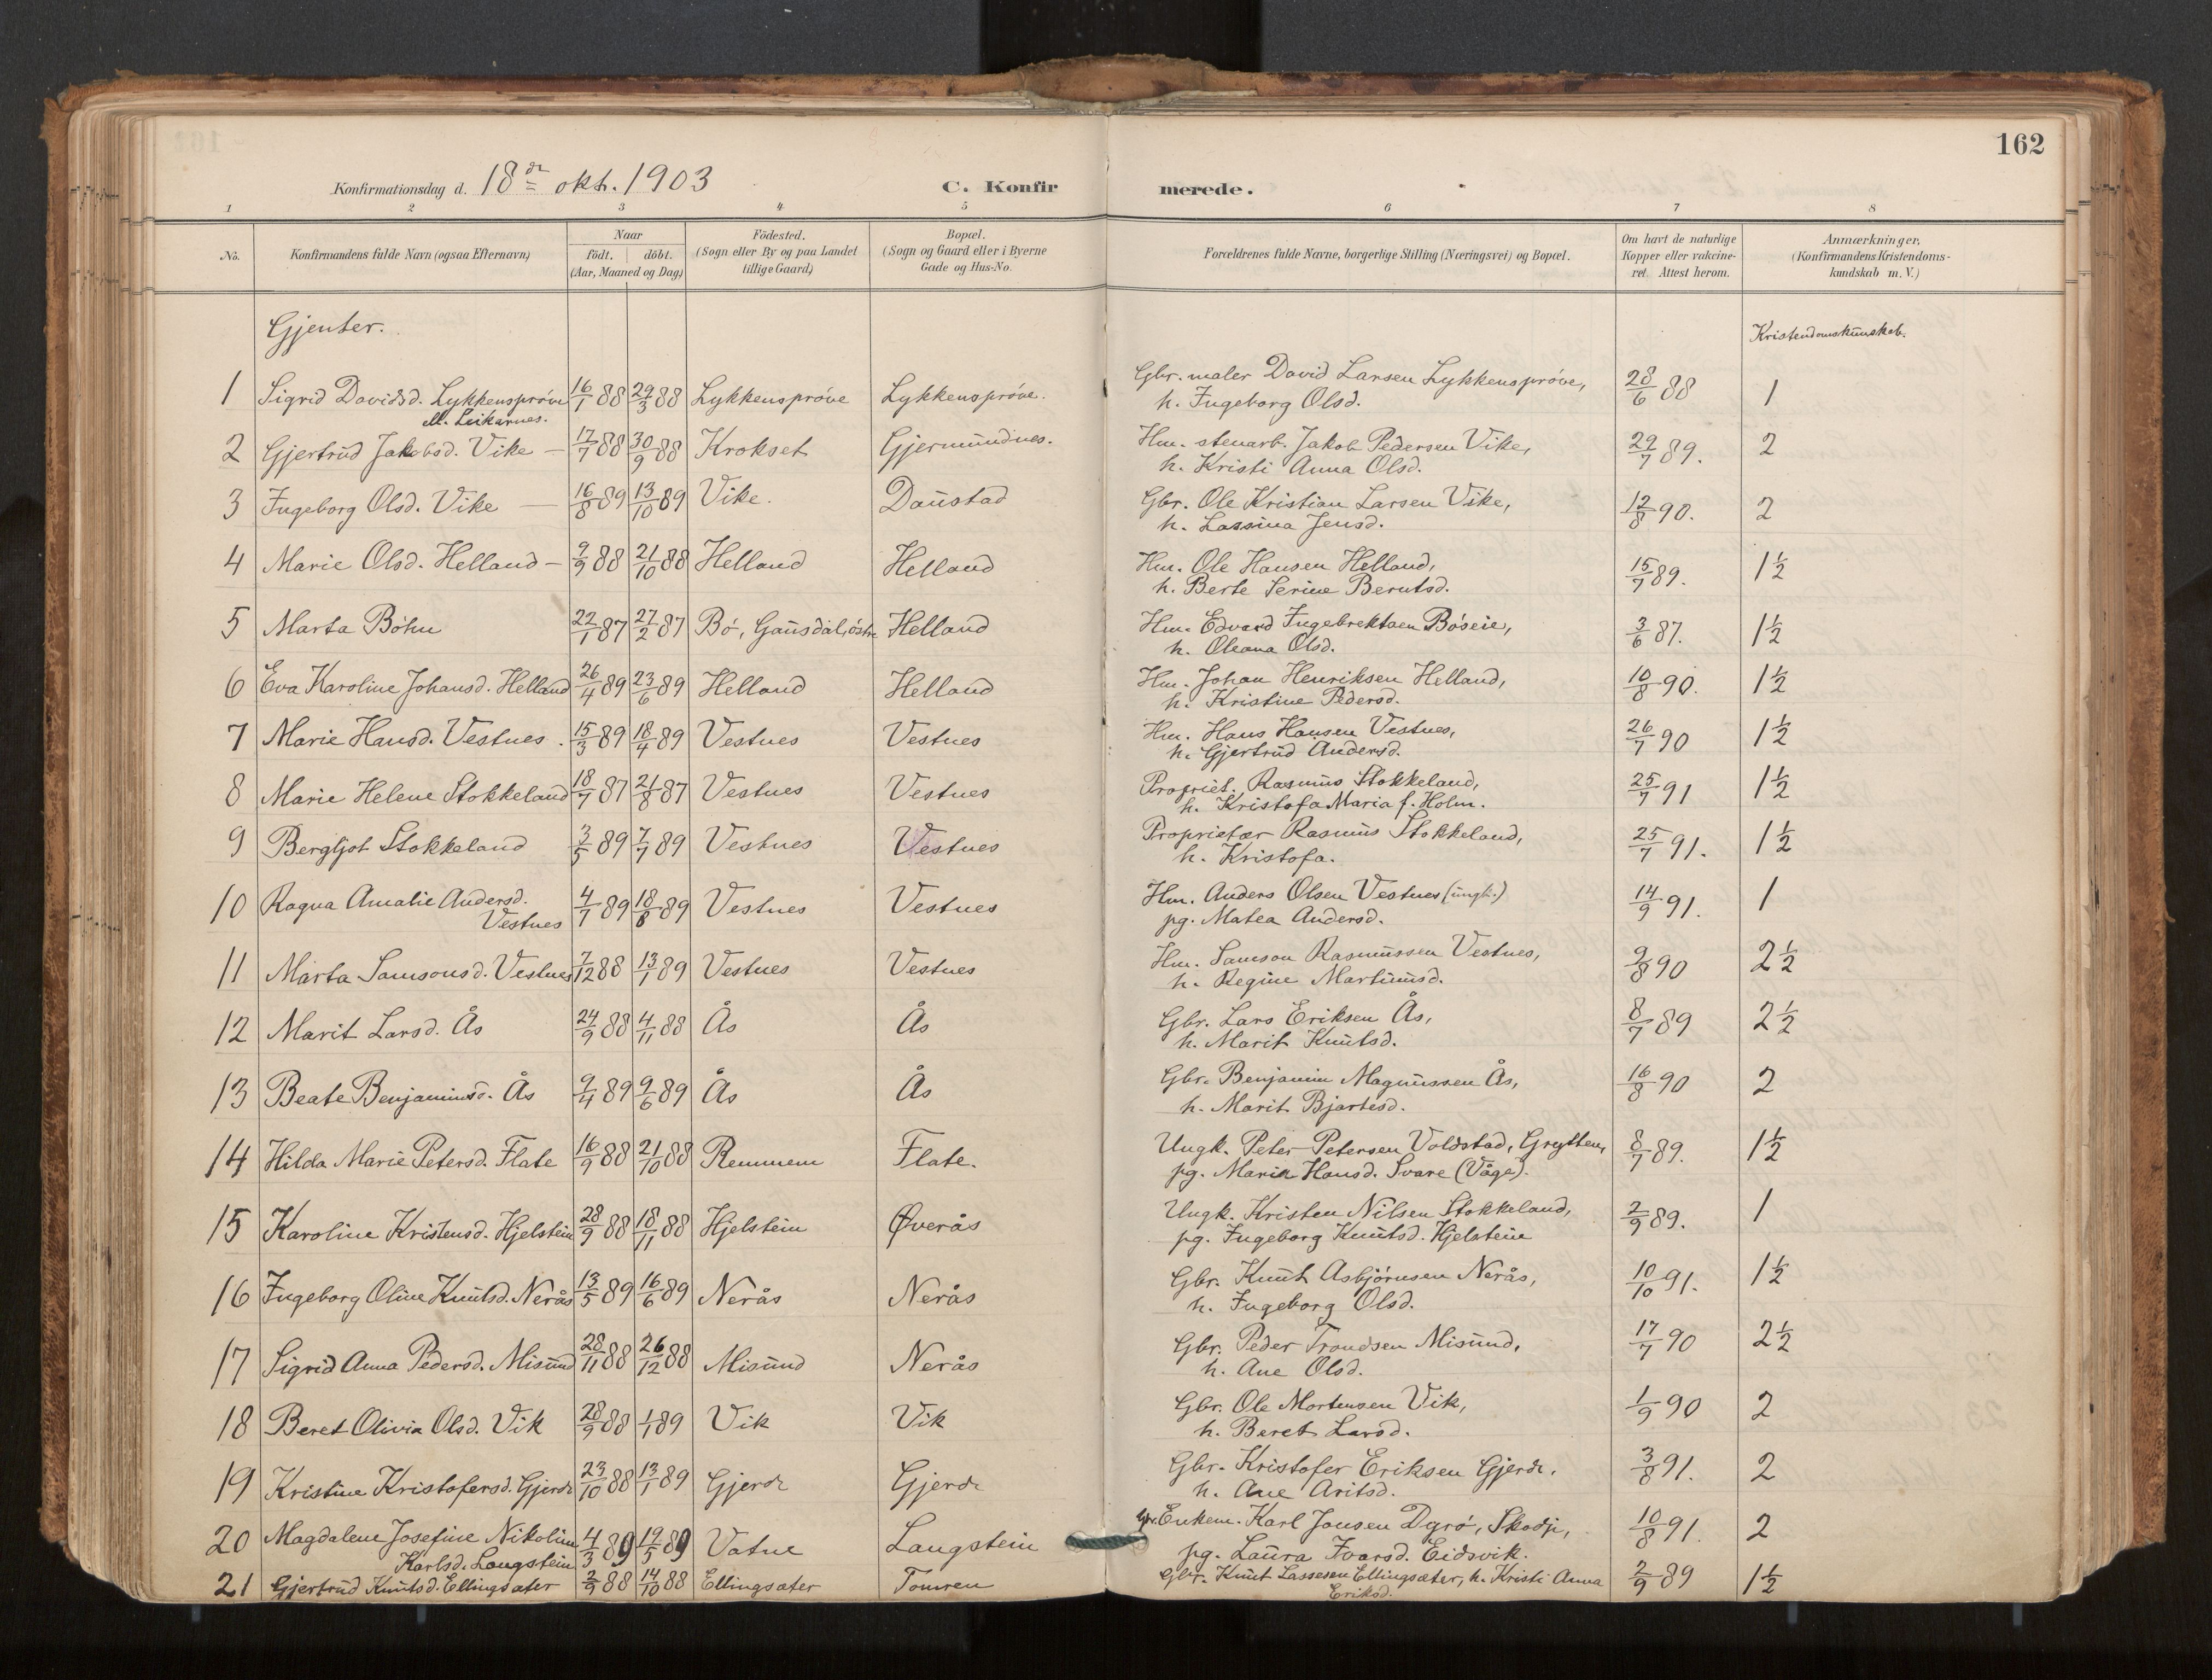 162
Konfirmationsdag d. 18de okt. 1903 C. Konfir merede.
1 2 3 4 5 6 7 8
No. Konfirmandens fulde Navn (ogsaa Efternavn) Naar födt. döbt. (Aar, Maaned og Dag) Födested. (Sogn eller By og paa Landet tillige Gaard) Bopæl. (Sogn og Gaard eller i Byerne Gade og Hus-No. Forældrenes fulde Navne, borgerlige Stilling (Næringsvei) og Bopæl. Om havt de naturlige Kopper eller vakcineret. Attest herom. Anmærkninger. (Konfirmandens Kristendomskundskab m. V.)
Gjenter. Kristendomskunskab.
1 Sigrid Davidsd. Lykkensprøve 16/1 88 29/3 88 Lykkensprøve Lykkensprøve. Gbr. maler David Larsen Lykkensprøve, 28/6 88 1
ell. Leikarnes. h. Ingeborg Olsd.
2 Gjertrud Jakobsd. Vike — 17/7 88 30/9 88 Krokset Gjermundnes. Hm. stenarb. Jakob Pedersen Vike, 29/7 89. 2
h. Kristi Anna Olsd.
3 Ingeborg Olsd. Vike — 16/8 89 13/10 89 Vike. Daustad Gbr. Ole Kristian Larsen Vike, 12/8 90. 2
h. Lassina Jensd.
4 Marie Olsd. Helland — 9/9 88 21/10 88 Helland Helland Hm. Ole Hansen Helland, 15/7 89. 1½
h. Berte Serine Berntsd.
5 Marta Bøhn 22/1 87 27/2 87 Bø, Gausdal, østre Helland Hm. Edvard Ingebrektsen Bøseie, 3/6 87. 1½
h. Oleana Olsd.
6 Eva Karoline Johansd. Helland 26/4 89 23/6 89 Helland Helland Hm. Johan Henriksen Helland, 10/8 90. 1½
h. Kristine Pedersd.
7 Marie Hansd. Vestnes. 15/3 89 18/4 89 Vestnes Vestnes Hm. Hans Hansen Vestnes, 26/7 90 1½
h. Gjertrud Andersd.
8 Marie Helene Stokkeland 18/7 87 21/8 87 Vestnes Vestnes Propriet. Rasmus Stokkeland, 25/7 91 1½
h. Kristofa Maria f. Holm.
9 Bergljot Stokkeland 3/5 89 7/7 89 Vestnes Vestnes Proprietær Rasmus Stokkeland, 25/7 91. 1½
h. Kristofa.
10 Ragna Amalie Andersd. 4/7 89 18/8 89 Vestnes Vestnes Hm. Anders Olsen Vestnes (ungk.) 14/9 91. 1
Vestnes pg. Matea Andersd.
11 Marta Samsonsd. Vestnes 7/12 88 13/1 89 Vestnes Vestnes Hm. Samson Rasmussen Vestnes, 9/8 90 2½
h. Regine Martinusd.
12 Marit Larsd. Ås 24/9 88 4/11 88 Ås Ås Gbr. Lars Eriksen Ås, 8/7 89 2½
h. Marit Knutsd.
13 Beate Benjaminsd. Ås 9/4 89 9/6 89 Ås Ås Gbr. Benjamin Magnussen Ås, 16/8 90 2
h. Marit Bjartesd.
14 Hilda Marie Petersd. Flate 16/9 88 21/10 88 Remmem Flate. Ungk. Peter Petersen Voldstad, Grytten, 8/7 89. 1½
pg. Maria Hansd. Svare (Våge).
15 Karoline Kristensd. Hjelstein 28/9 88 18/11 88 Hjelstein Øverås Ungk. Kristen Nilsen Stokkeland, 2/9 89. 1
pg. Ingeborg Knutsd. Hjelstein
16 Ingeborg Oline Knutsd. Nerås 13/5 89 16/6 89 Nerås Nerås Gbr. Knut Asbjørnsen Nerås, 10/10 91. 1½
h. Ingeborg Olsd.
17 Sigrid Anna Pedersd. Misund 28/11 88 26/12 88 Misund Nerås Gbr. Peder Trondsen Misund, 17/7 90 2½
h. Ane Olsd.
18 Beret Olivia Olsd. Vik 28/9 88 1/1 89 Vik Vik Gbr. Ole Mortensen Vik, 1/9 90 2
h. Beret Larsd.
19 Kristine Kristofersd. Gjerde 23/10 88 13/1 89 Gjerde Gjerde Gbr. Kristofer Eriksen Gjerde, 3/8 91. 2
h. Ane Aritsd.
20 Magdalene Josefine Nikoline 4/3 89 19/5 89 Vatne Langstein Enkem. Karl Jonsen Dyrø, Skodje, 10/8 91. 2
Karlsd. Langstein pg. Laura Ivarsd. Eidsvik.
21 Gjertrud Knutsd. Ellingsæter 2/9 88 14/10 88 Ellingsæter Tomren Gbr. Knut Lassesen Ellingsæter, h. Kristi Anna 2/9 89 1½
Eriksd.